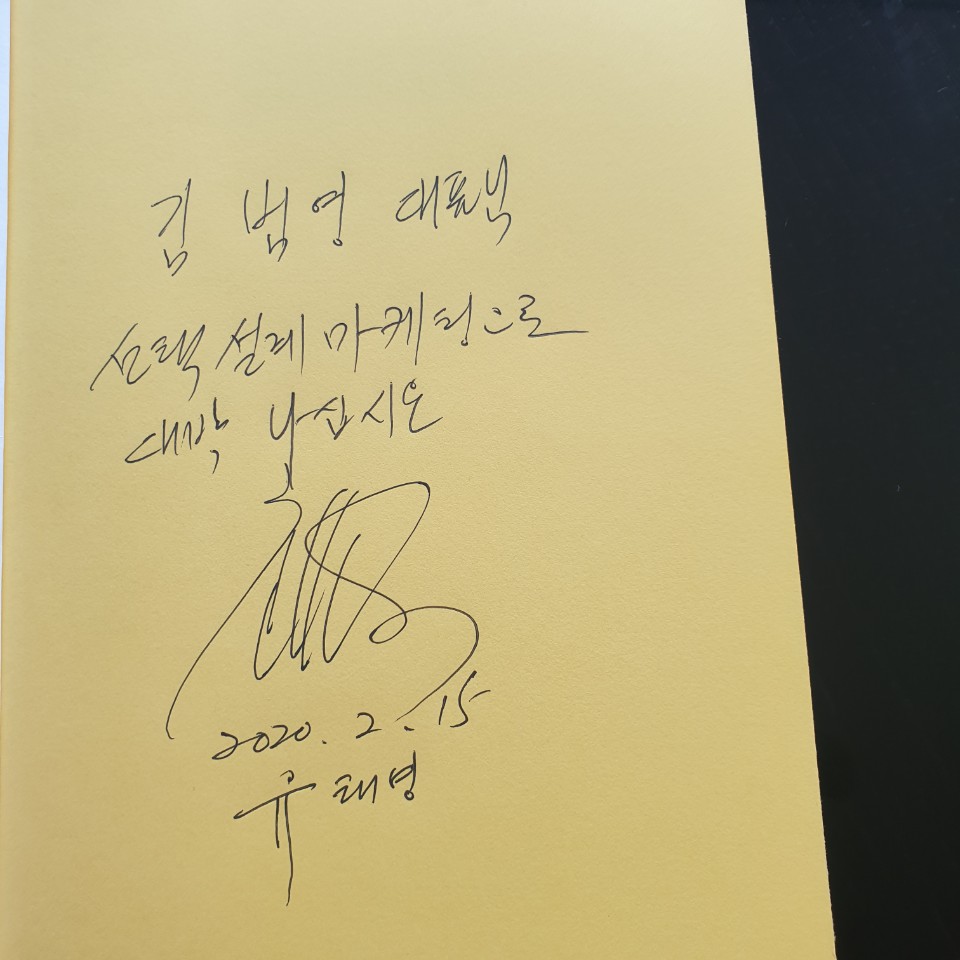 김 범영 대표님
선택 설계 마케팅으로
대박 나십시오
2020. 2. 15
유태영